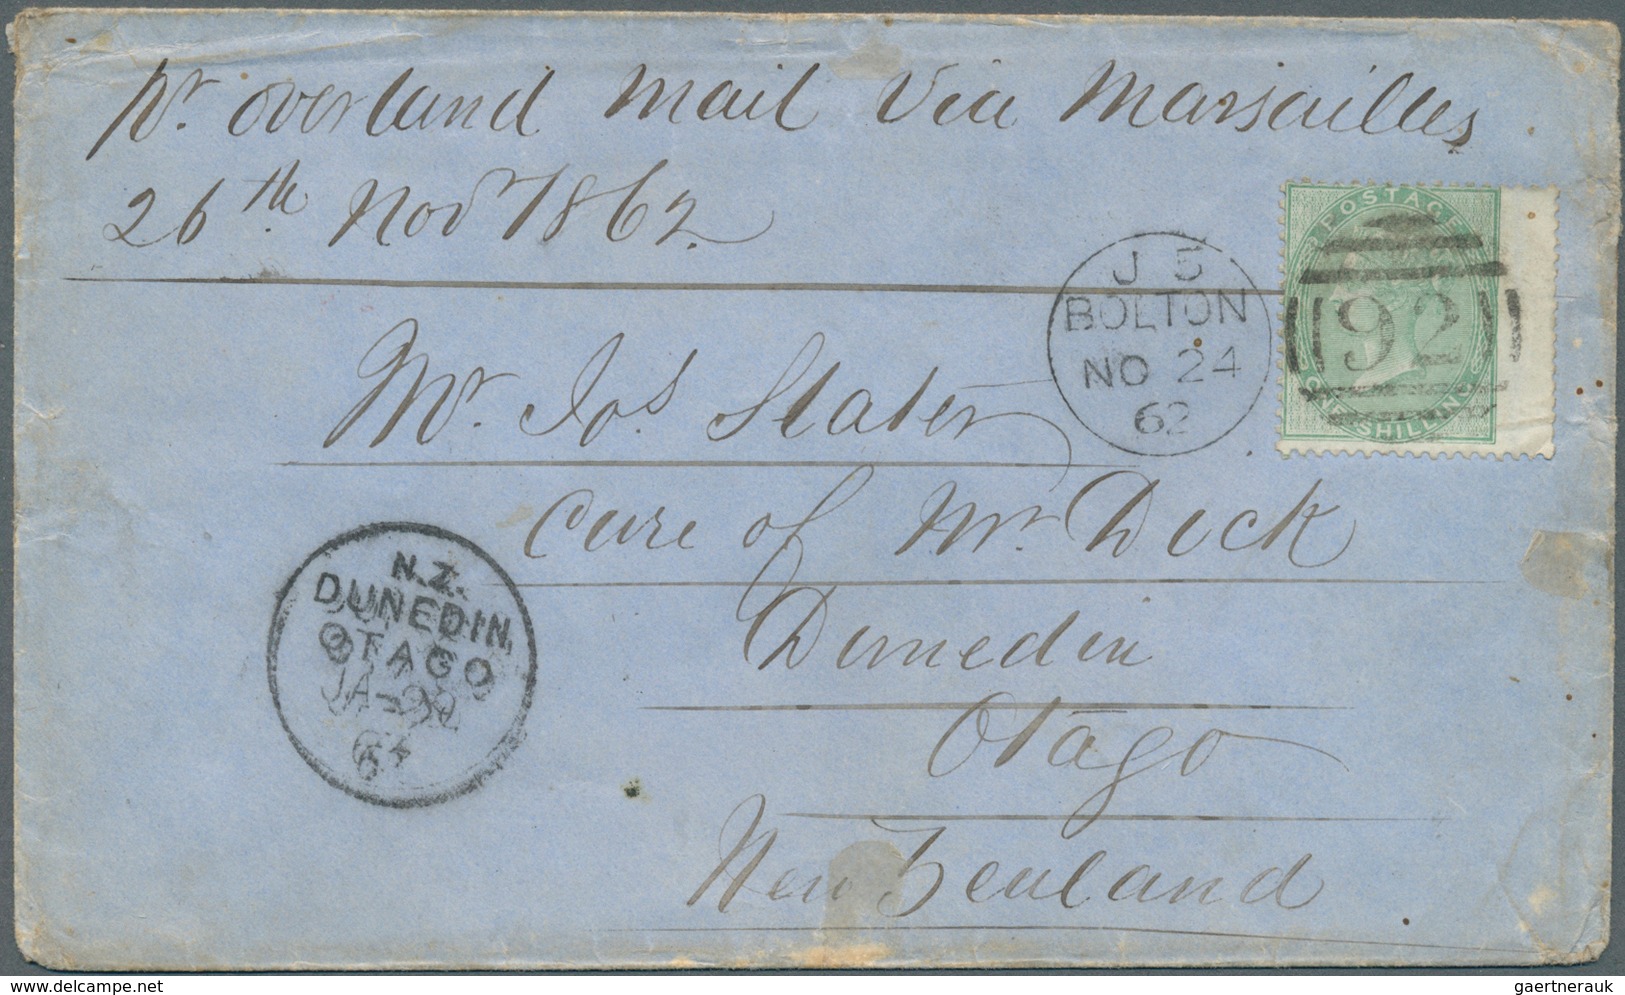 pr. overland mail Via Marsailles
26th Novr 1862
POSTAGE
J 5
BOLTON
NO 24
62
92
SHILLING
Mr. Jos Slater
Care of Mr. Dick
N.Z.
DUNEDIN
OTAGO
JA
63
Dunedin
Otago
New Zealand
gaertnerauk